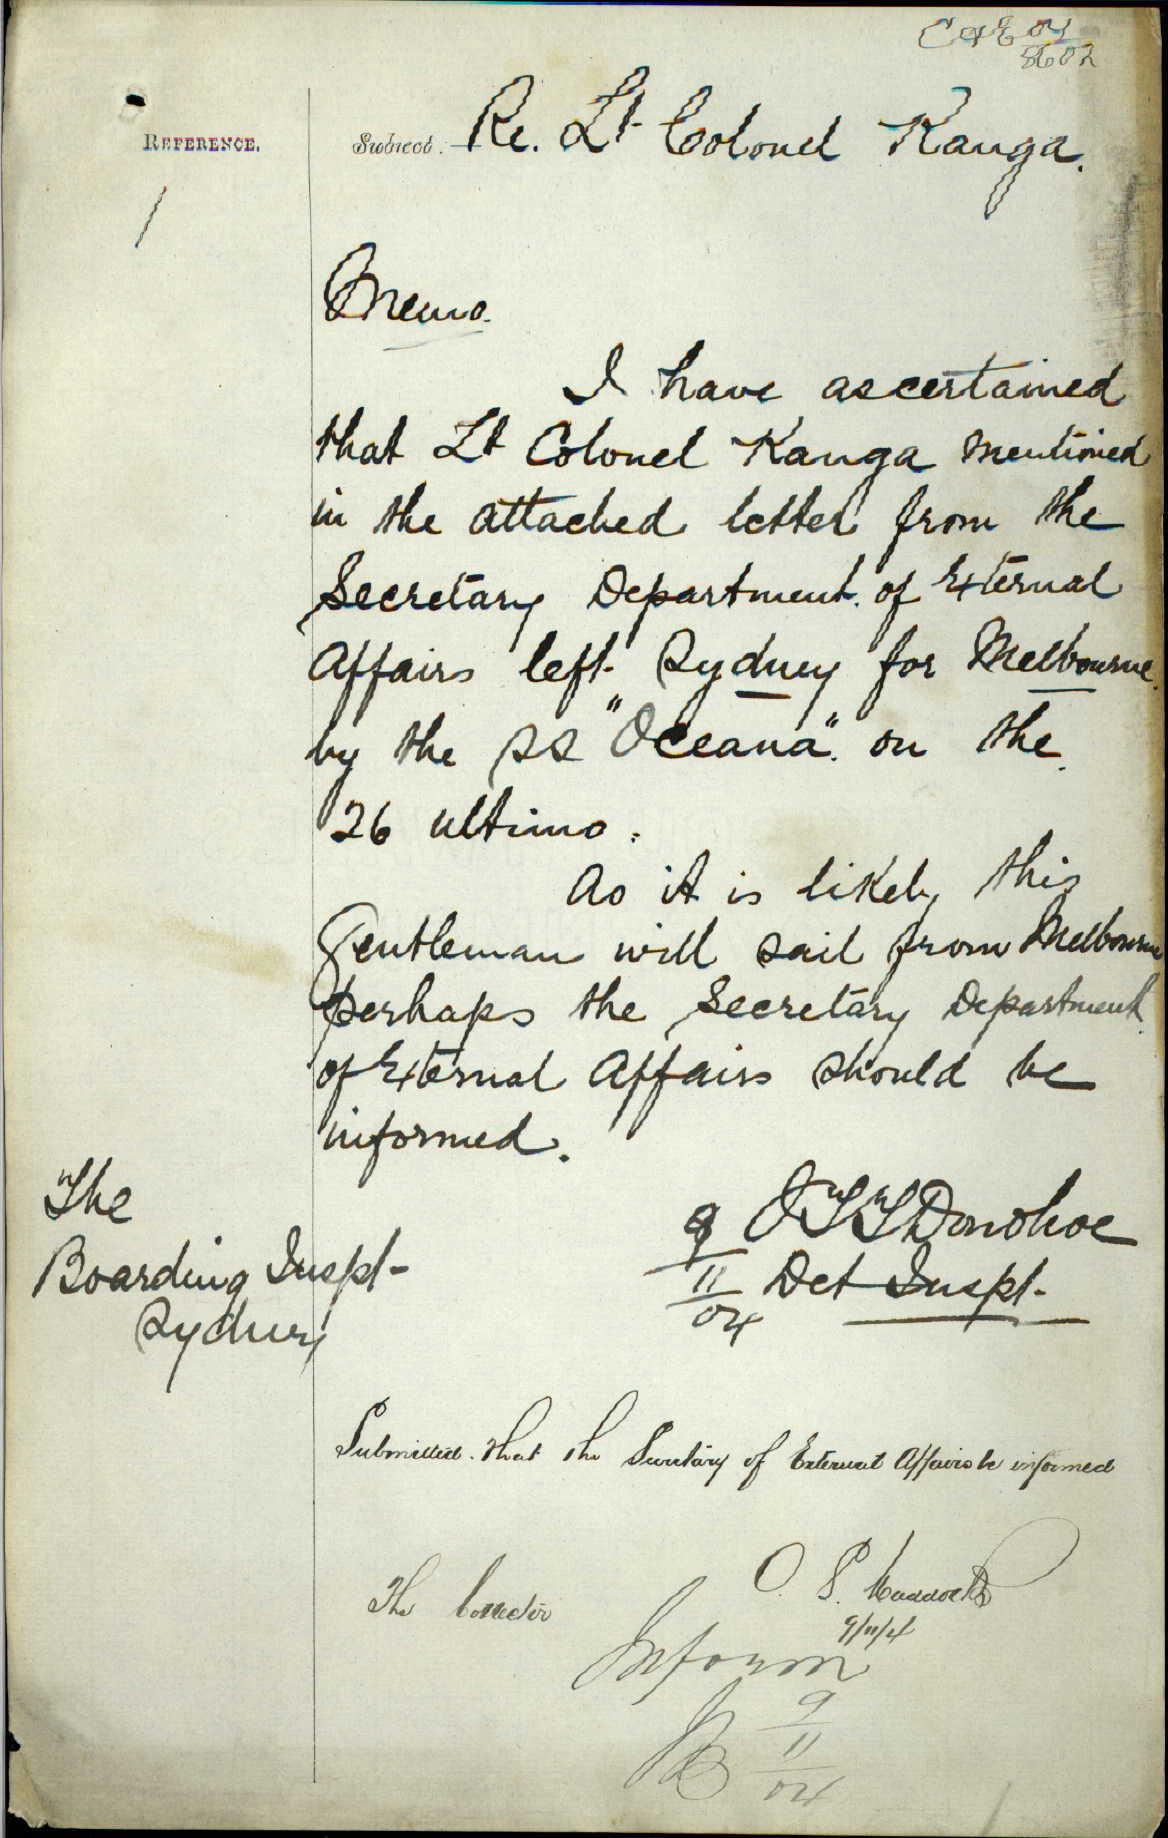 C & E 04
8602
REFERENCE.
Subject. Re. Lt Colonel Kanga.
/
Memo.
I have ascertained
that Lt Colonel Kanga mentioned
in the attached letter from the
Secretary Department of External
Affairs left Sydney for Melbourne
by the SS "Oceana". on the
26 ultimo.
As it is likely this
Gentleman will sail from Melbourne
perhaps the Secretary Department
of External Affairs should be
informed.
The
Boarding Inspt-
Sydney
Donohoe
Det Inspt.
9
11
04
Submitted. that the Secretary of External Affairs be informed
The Collector
O. S. Maddocks
9/11/4
Inform
9
11
04